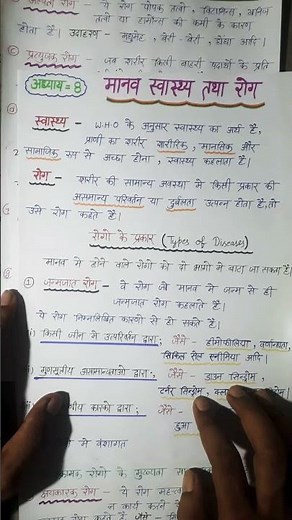 ये रोग पोषक तत्वों, विटामिन्स, खनिज
तत्वों या हार्मोन्स की कमी के कारण
होता है। उदाहरण - मधुमेह, बेरी बेरी, घेंघा आदि।
जब शरीर किसी बाहरी पदार्थों के प्रति
अध्याय = 8
मानव स्वास्थ्य तथा रोग
स्वास्थ्य - W.H.O के अनुसार स्वास्थ्य का अर्थ है,
प्राणी का शरीर शारीरिक, मानसिक और
सामाजिक रूप से अच्छा होना, स्वास्थ्य कहलाता है।
रोग - शरीर की सामान्य अवस्था में किसी प्रकार की
असमान्य परिवर्तन या दुर्बलता उत्पन्न होता है, तो
उसे रोग कहते हैं।
रोगों के प्रकार (Types of Diseases)
मानव में होने वाले रोगों को दो भागों में बाटा जा सकता है।
① जन्मजात रोग - वे रोग जो मानव में जन्म से ही
जन्मजात रोग कहलाते हैं।
ये रोग निम्नलिखित कारणों से हो सकते हैं।
i) किसी जीन में उत्परिवर्तन द्वारा; जैसे - हीमोफीलिया, वर्णान्धता,
सिकिल सेल एनीमिया आदि।
गुणसूत्रीय असमानताओं द्वारा; जैसे - डाउन सिन्ड्रोम,
टर्नर सिन्ड्रोम,
कारकों द्वारा; जैसे -
में वंशागत
रोगों के मुख्यतः
ये रोग
न कार्य करने